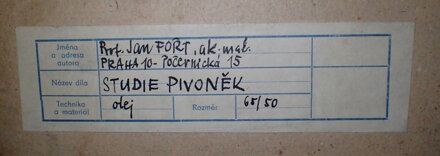 Jména
a adresa
autora
Prof. Jan FOŘT, ak. mal.
PRAHA 10 - Počernická 15
Název díla
STUDIE PIVONĚK
Technika
a materiál
olej
Rozměr
65/50